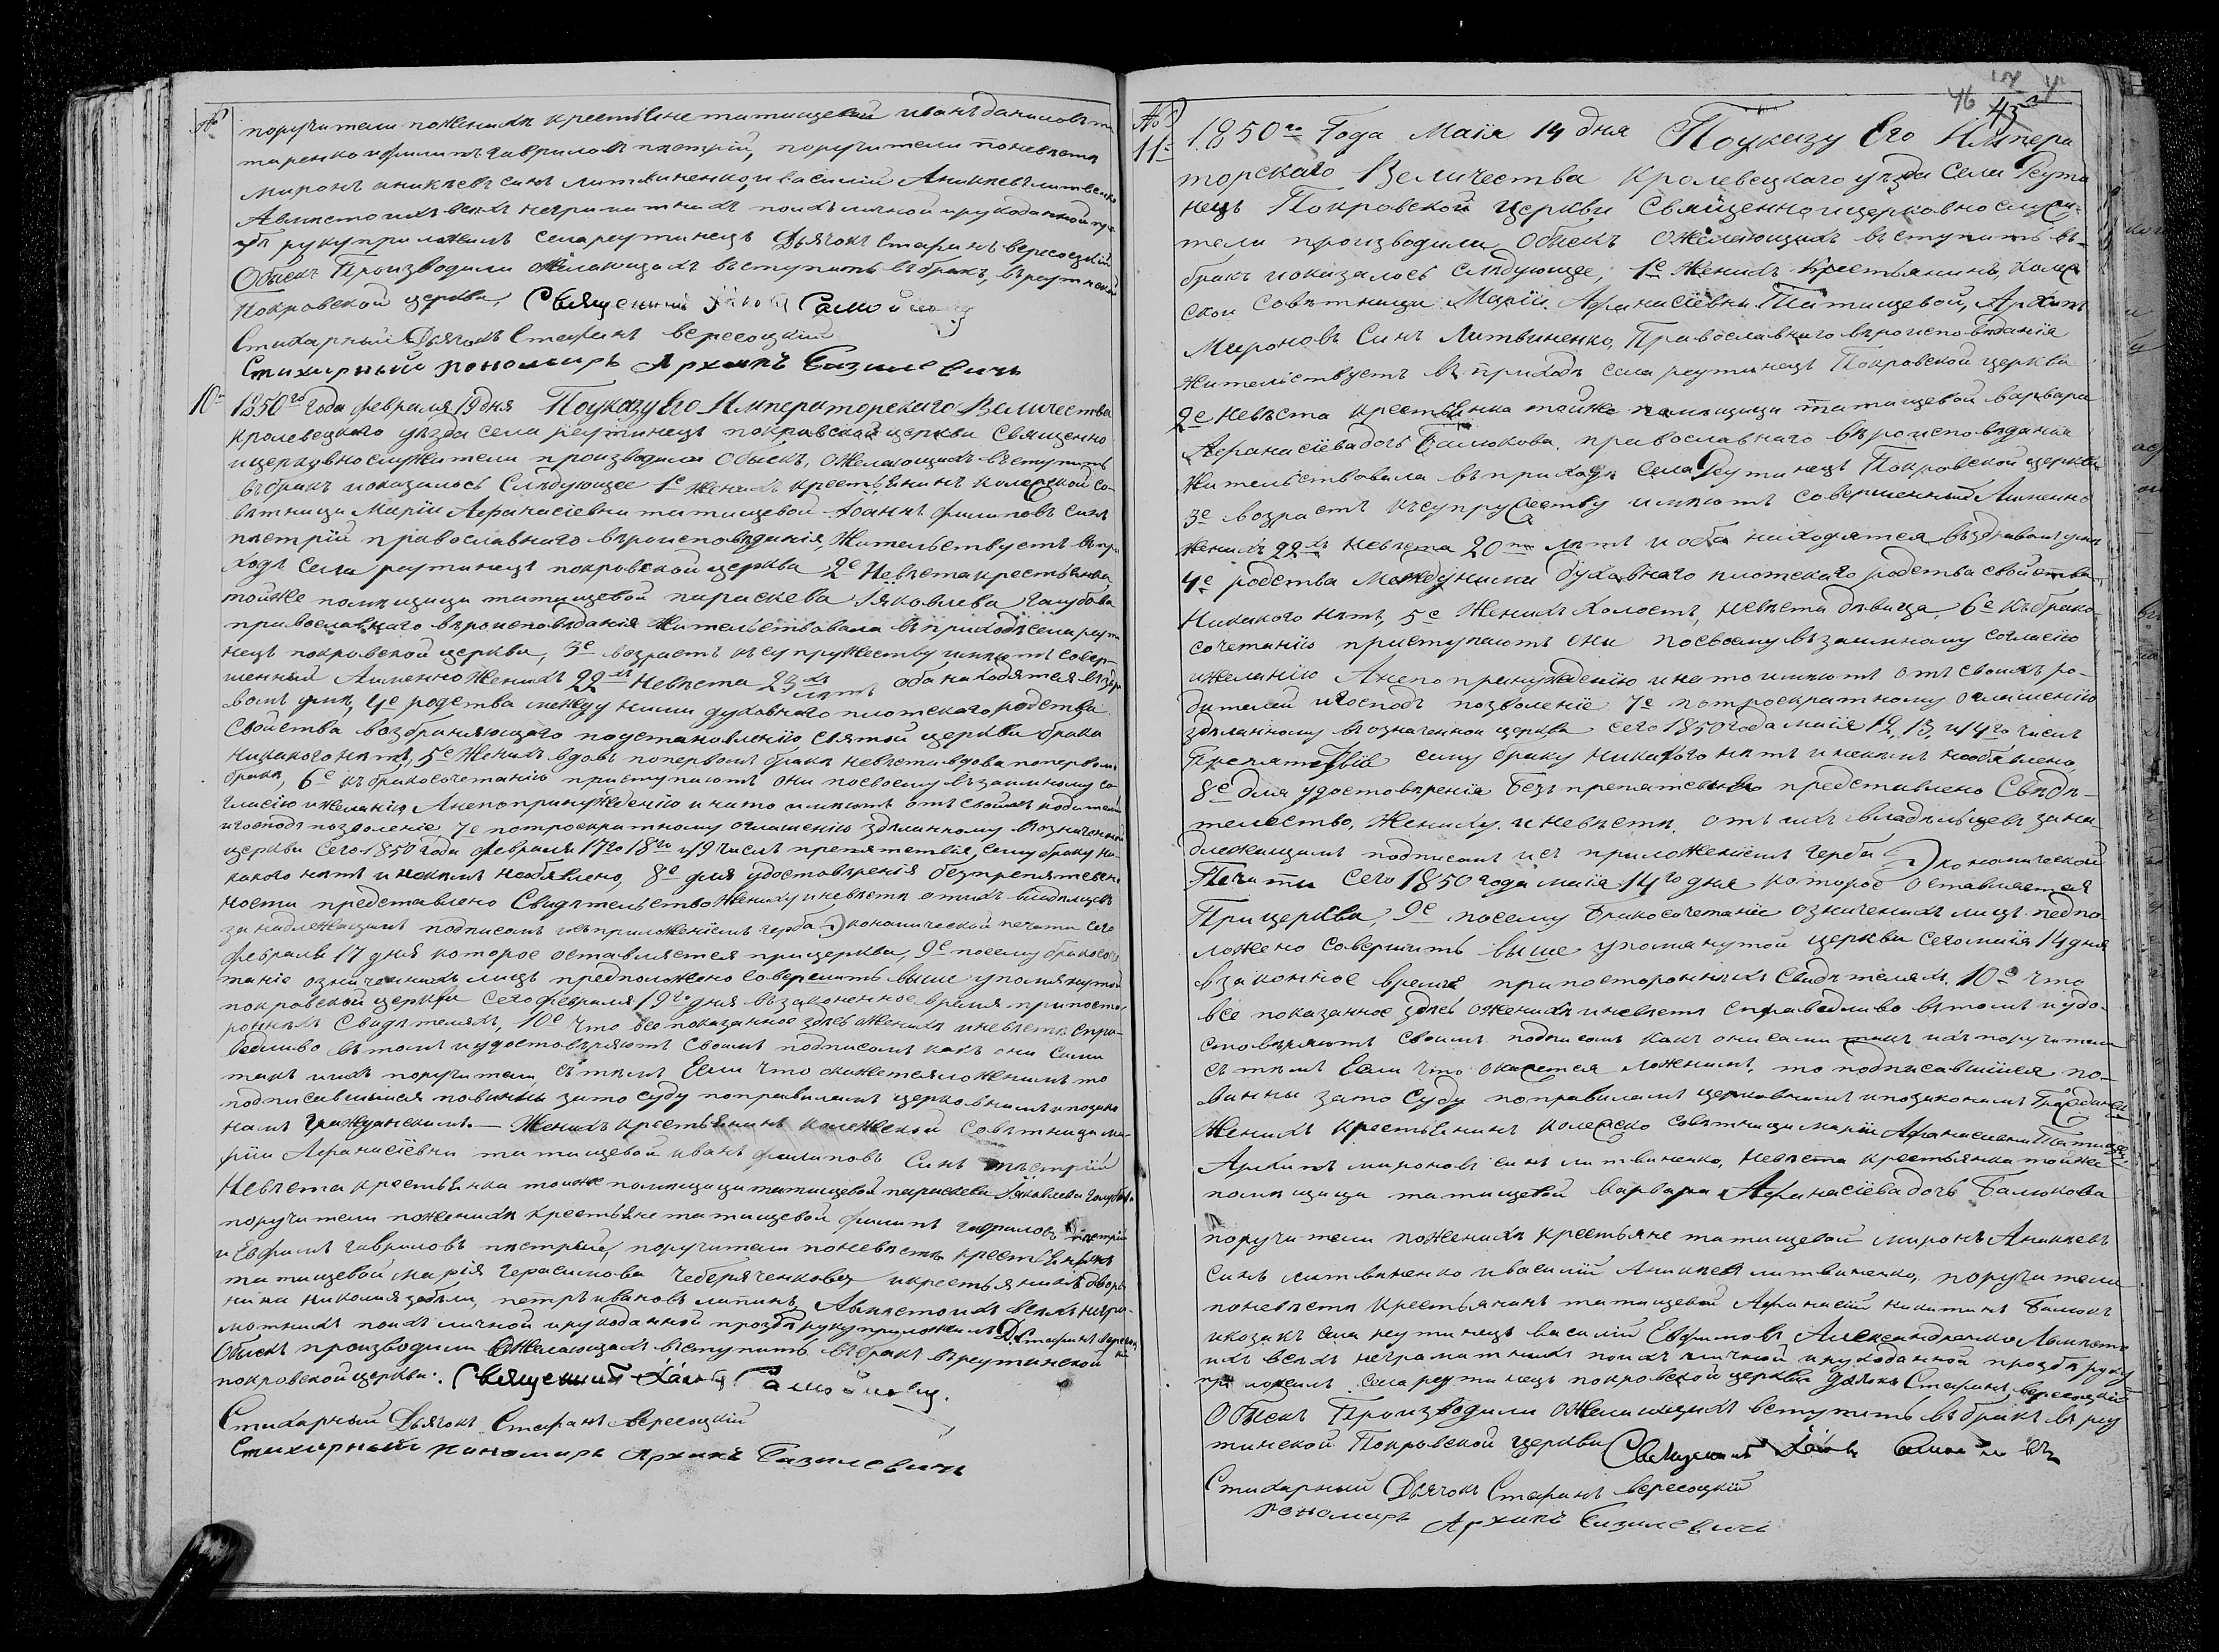 №
поручители по женихѣ крестьяне татищевой иванъ даниловъ
таренко и филипъ гавриловъ пестрій, поручители по невѣстѣ
миронъ аникѣевъ синъ литвиненко, и василій Аникѣевъ литвененко
А вмѣсто ихъ всехъ неграмотнихъ по ихъ личной и рукоданной про
збѣ руку приложилъ села реутинецъ Дьячокъ Стефанъ вересоцкій
Обыскъ Производили о желающихъ вступить въ бракъ, въ реутинской
Покровской церкви, Священникъ Самойловъ
Стихарный Дьячокъ Стефанъ вересоцкій
Стихарный пономарь Архипъ Базилевичъ
10. 1850го года февраля 19 дня По указу Его Императорскаго Величества
кролевецкаго уѣзда села реутинецъ покровской церкви Священно
и церковнослужители производили Обыскъ, о желающихъ вступить
въ бракъ и оказалось Слѣдующее 1е женихъ крестьянинъ колежской со-
вѣтници Маріи Афанасіевни татищевой Іоаннъ филиповъ синъ
пестрій православнаго вѣроисповѣданія, Жительствуетъ въ при
ходѣ села реутинецъ покровской церкви 2е Невѣста крестьянка
тойже помѣщици татищевой параскева Яковлева Голубова
православнаго вѣроисповѣданія жительствовала въ приходѣ села реути
нецъ покровской церкви, 3е возрастъ къ супружеству имѣютъ совер-
шенный А именно Женихъ 22хъ Невѣста 23хъ лѣтъ оба находятся въ здра
вомъ умѣ, 4е родства между ними духовного плотскаго родства
Свойства возбраняющаго по установленію святой церкви брака
никакого нѣтъ, 5е Женихъ вдовъ по первомъ бракѣ невѣста вдова по первомъ
бракѣ, 6е къ бракосочетанію приступаютъ они по своему взаимному со
гласію и желанію А не по принужденію и на то имѣютъ отъ своихъ родителей
и господъ позволеніе 7е по троекратному оглашенію зделанному в означенной
церкви Сего 1850 года Февраля 17го 18го и 19 числъ препятствія, сему браку ни
какого нѣтъ и некѣмъ необявлено, 8е для удостовѣренія безпрепятствен
ности представлено Свидѣтельство Жениху и невѣсти от ихъ владѣлцевъ
за надлежащимъ подписомъ и съ приложеніемъ герба Экономической печати сего
февраля 17 дня которое оставляется при церкви, 9е посему бракосоче
таніе означенихъ лицъ предположено совершить выше упомянутой
покровской церкви сего февраля 19го дня въ законенное время при посто
роннихъ свидѣтеляхъ, 10е что все показанное здѣсь о женихѣ и невѣстѣ спра-
ведливо въ томъ и удостовѣряютъ своимъ подписомъ какъ они сами
такъ и ихъ поручители, съ тѣмъ Если что окажется ложнимъ то
подписавшыися повинны за то суду по правиламъ церковнымъ и по зако
намъ гражданскимъ.— Женихъ крестьянинъ колежской совѣтници ма
ріи Афанасіевни татищевой иванъ филиповъ Синъ пестрій
Невѣста крестьянка тойже помѣщици татищевой параскева Яковлева Голубова
поручители по женихѣ крестьяне татищевой филипъ гавриловъ пестрій
и Евфимъ гавриловъ пестрый, поручители по невѣстѣ крестьянинъ
татищевой марія герасимова Чеберяченкова и крестьянинъ дворя
нина николая забѣли, петръ ивановъ лапинъ, А вмѣсто ихъ всехъ негра-
мотнихъ по ихъ личной и рукоданной прозбѣ руку приложилъ Д. Стефанъ вересоцкій
Обыскъ производили О желающихъ вступить въ бракъ въ реутинской
покровской церкви. Священникъ Самойловъ.
Стихарный Дьячокъ Стефанъ Вересоцкій
Стихарный пономарь Архипъ Базилевичъ
46 45
№
11. 1850го Года Маія 14 дня По указу Его Импера
торскаго Величества Кролевецкаго уѣзда Села Реути
нецъ Покровской церкви Священно и церковнослужи-
тели производили Обыскъ О желающихъ вступить въ
бракъ и оказалось слѣдующее, 1е Женихъ крестьянинъ, колеж
ской Совѣтници Маріи Афанасіевны Татищевой, Архипъ
Мироновъ Синъ Литвиненко, Православнаго вѣроисповѣданія
жительствуетъ въ приходѣ села реутинецъ Покровской церкви
2е Невѣста крестьянка тойже помѣщици татищевой варвара
Афанасіева дочь Балюкова. православнаго вѣроисповѣданія
Жительствовала въ приходѣ Села Реутинецъ Покровской церкви
3е возрастъ къ супружеству имѣютъ совершенный А именно
женихъ 22хъ невѣста 20ти лѣтъ и оба находятся въ здравомъ умѣ
4е родства между ними духовнаго плотскаго родства свойства
Никакого нѣтъ, 5е Женихъ холостъ, невѣста дѣвица, 6е къ брако-
сочетанію приступаютъ они по своему взаимному согласію
и желанію А не по принужденію и на то имѣютъ отъ своихъ ро-
дителей и господъ позволеніе 7е по троекратному оглашенію
зделанному в означенной церкви сего 1850 года маія 12, 13, и 14го числъ
Препятствія сему браку никакого нѣтъ и некѣмъ необявлено,
8е Для удостовѣренія безъпрепятствено представлено Свидѣ-
тельство, Жениху и невѣсти отъ ихъ владѣльцевъ за на
длежащимъ подписомъ и съ приложеніемъ герба Экономической
Печати сего 1850 года маія 14го дня которое оставляется
При церкви, 9е посему бракосочетаніе означенихъ лицъ педпо
ложено совершить выше упомянутой церкви сего маія 14 дня
в законное время при постороннихъ свидѣтеляхъ. 10е что
все показанное здѣсь о женихѣ и невѣсти справедливо въ томъ и удо-
стовѣряютъ своимъ подписомъ какъ они сами такъ ихъ поручители
съ тѣмъ Если что окажется ложнимъ, то подписавшіися по-
винны за то Суду по правиламъ церковнимъ и по законамъ Граждански
Женихъ крестьянинъ колежско совѣтници маріи Афанасіевни Татище
Архипъ мироновъ синъ литвиненко, невѣста крестьянка тойже
помѣщици татищевой варвара Афанасіева дочь Балюкова
поручители по женихѣ крестьяне татищевой миронъ Аникѣевъ
синъ литвиненко и василій Аникѣевъ литвиненко, поручители
по невѣсти крестьянинъ татищевой Афанасій никитинъ Балюкъ
и козакъ села реутинецъ василій Евфимовъ Александренко А вмѣсто
ихъ всехъ неграмотнихъ по ихъ личной и рукоданной прозбѣ руку
приложилъ села реутинецъ покровской церкви дьячокъ Стефанъ вересоцкій
Обыскъ Производили о желающихъ вступить въ бракъ въ реу
тинской Покровской церкви Священникъ
Стихарный Дьячокъ Стефанъ вересоцкій
Пономарь Архипъ Базилевичъ